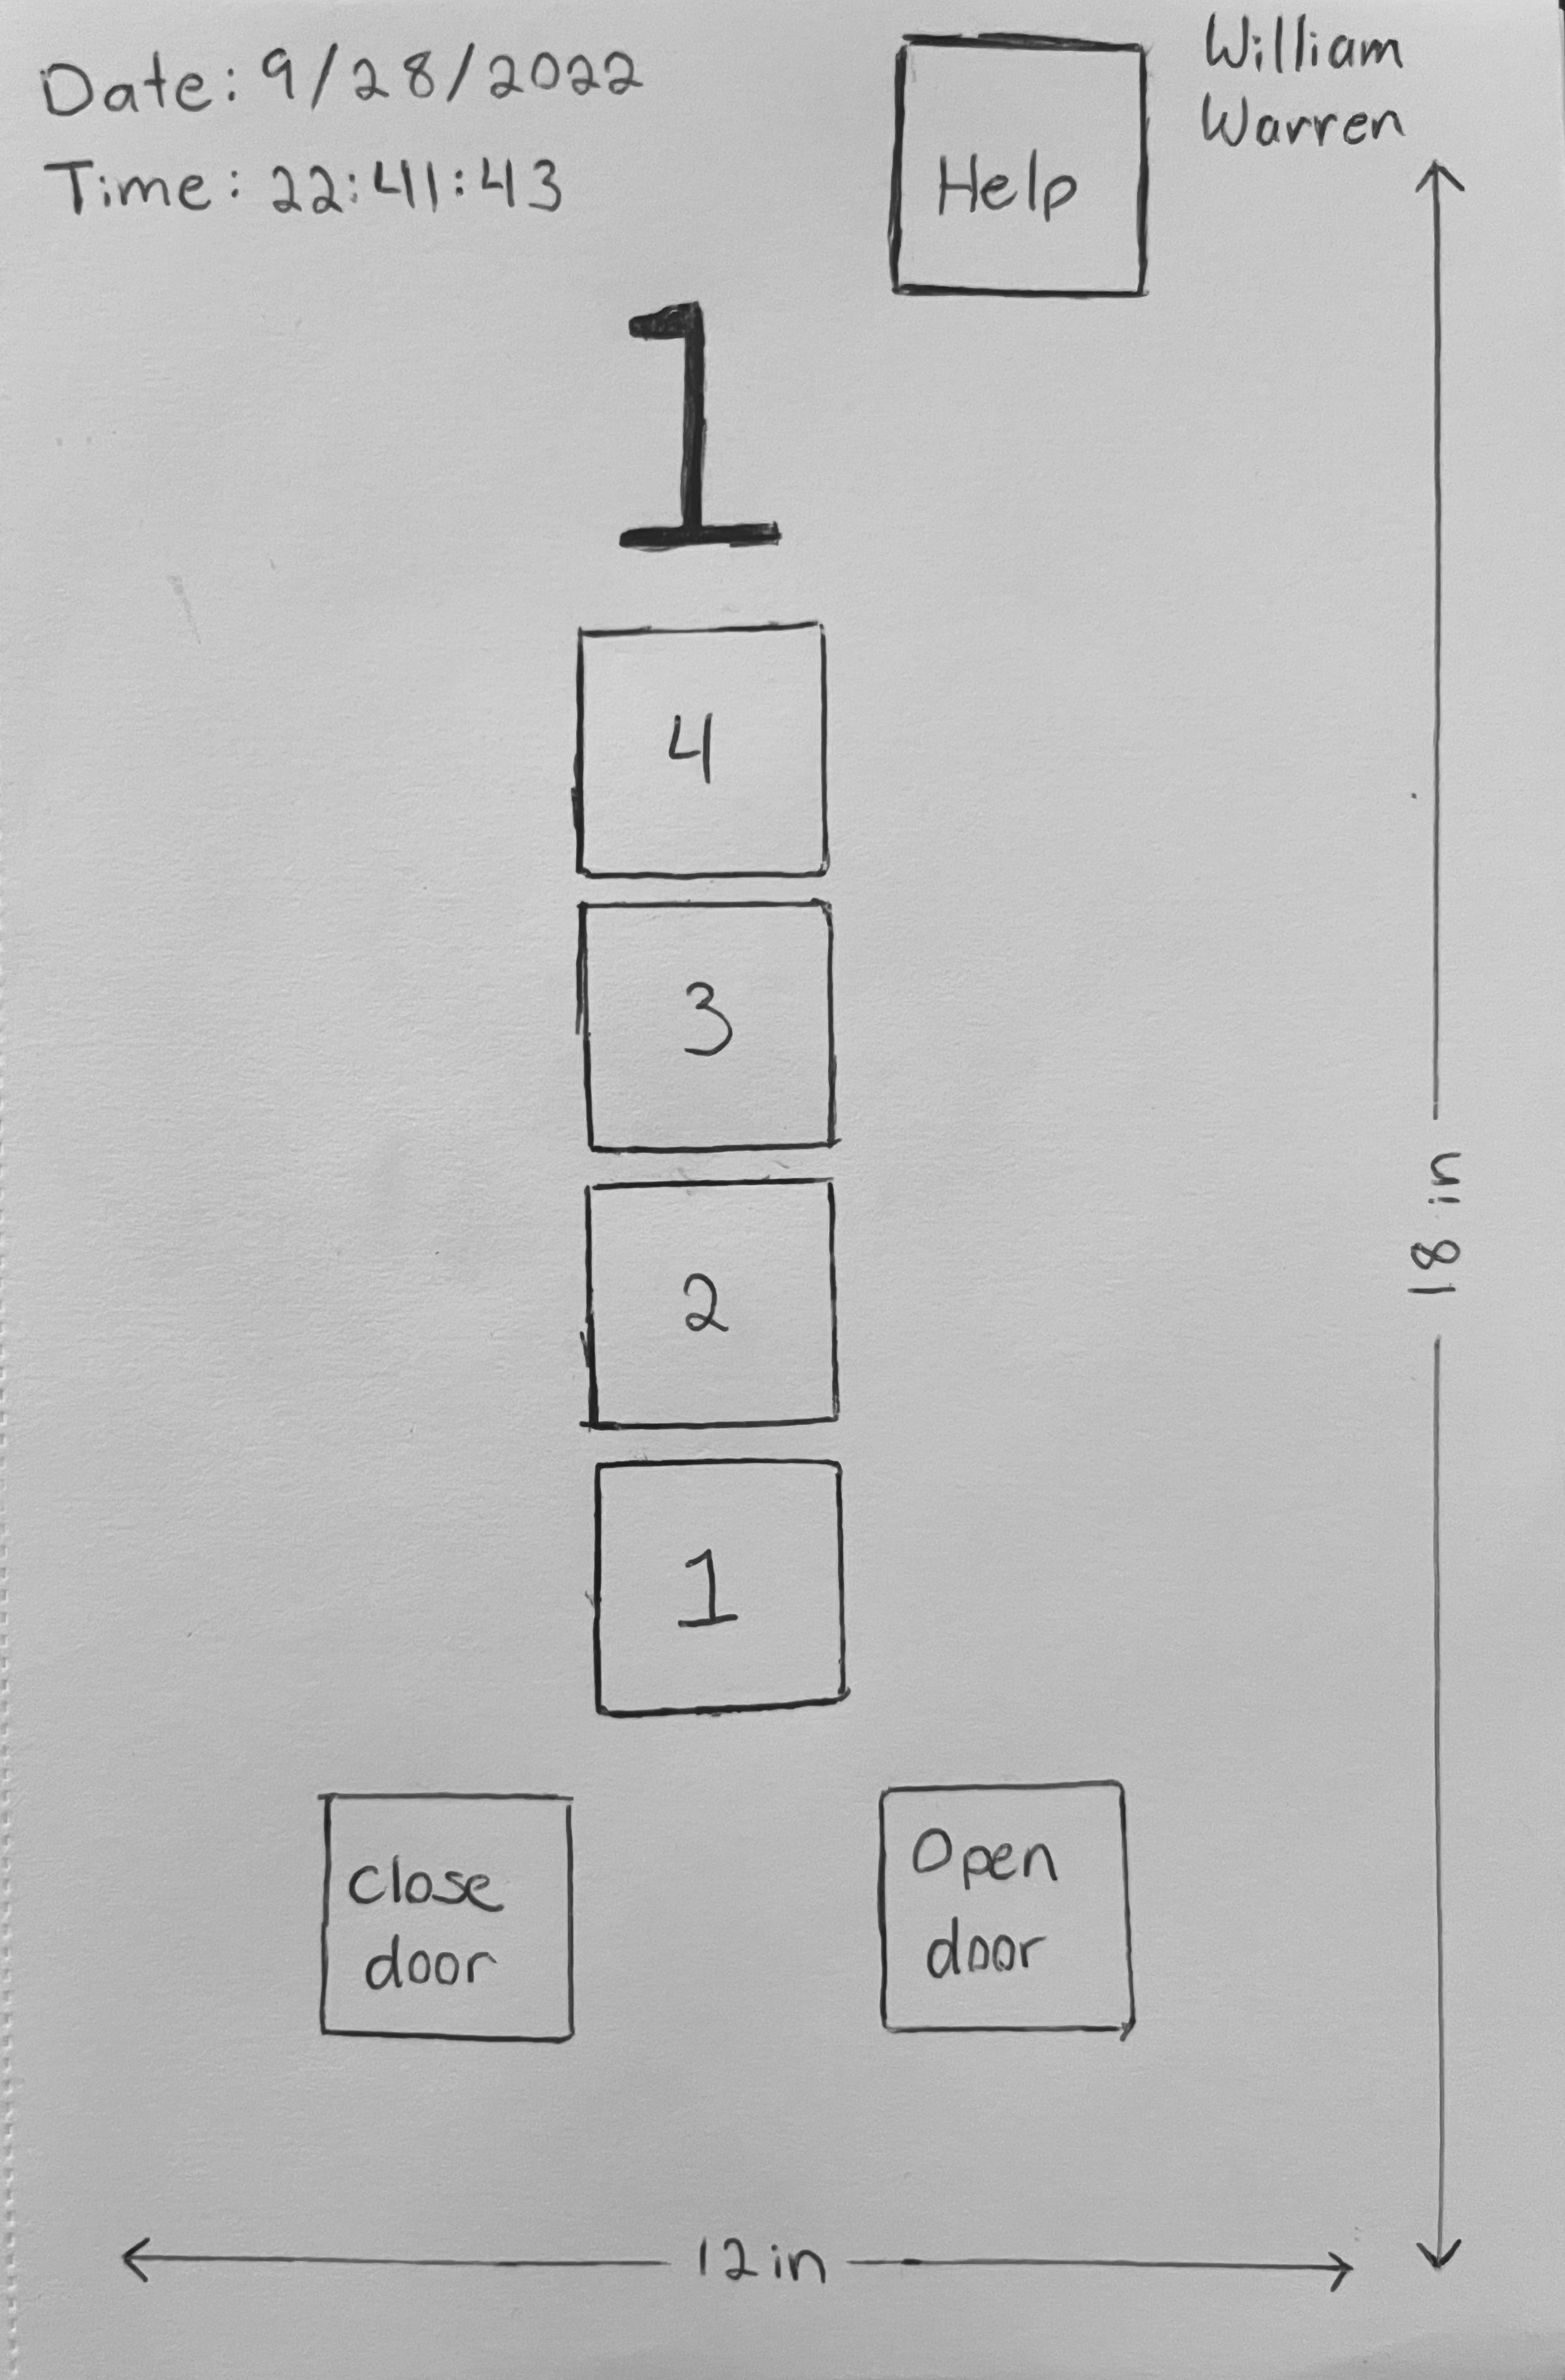 Date: 9/28/2022
Time: 22:41:43
Help
William
Warren
1
4
3
2
1
Close
door
Open
door
18 in
12 in